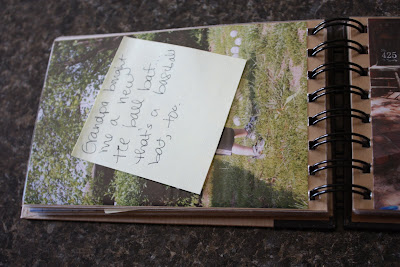 Grandpa bought
me a new
tee ball bat
that's a baseball
bat, too.
425